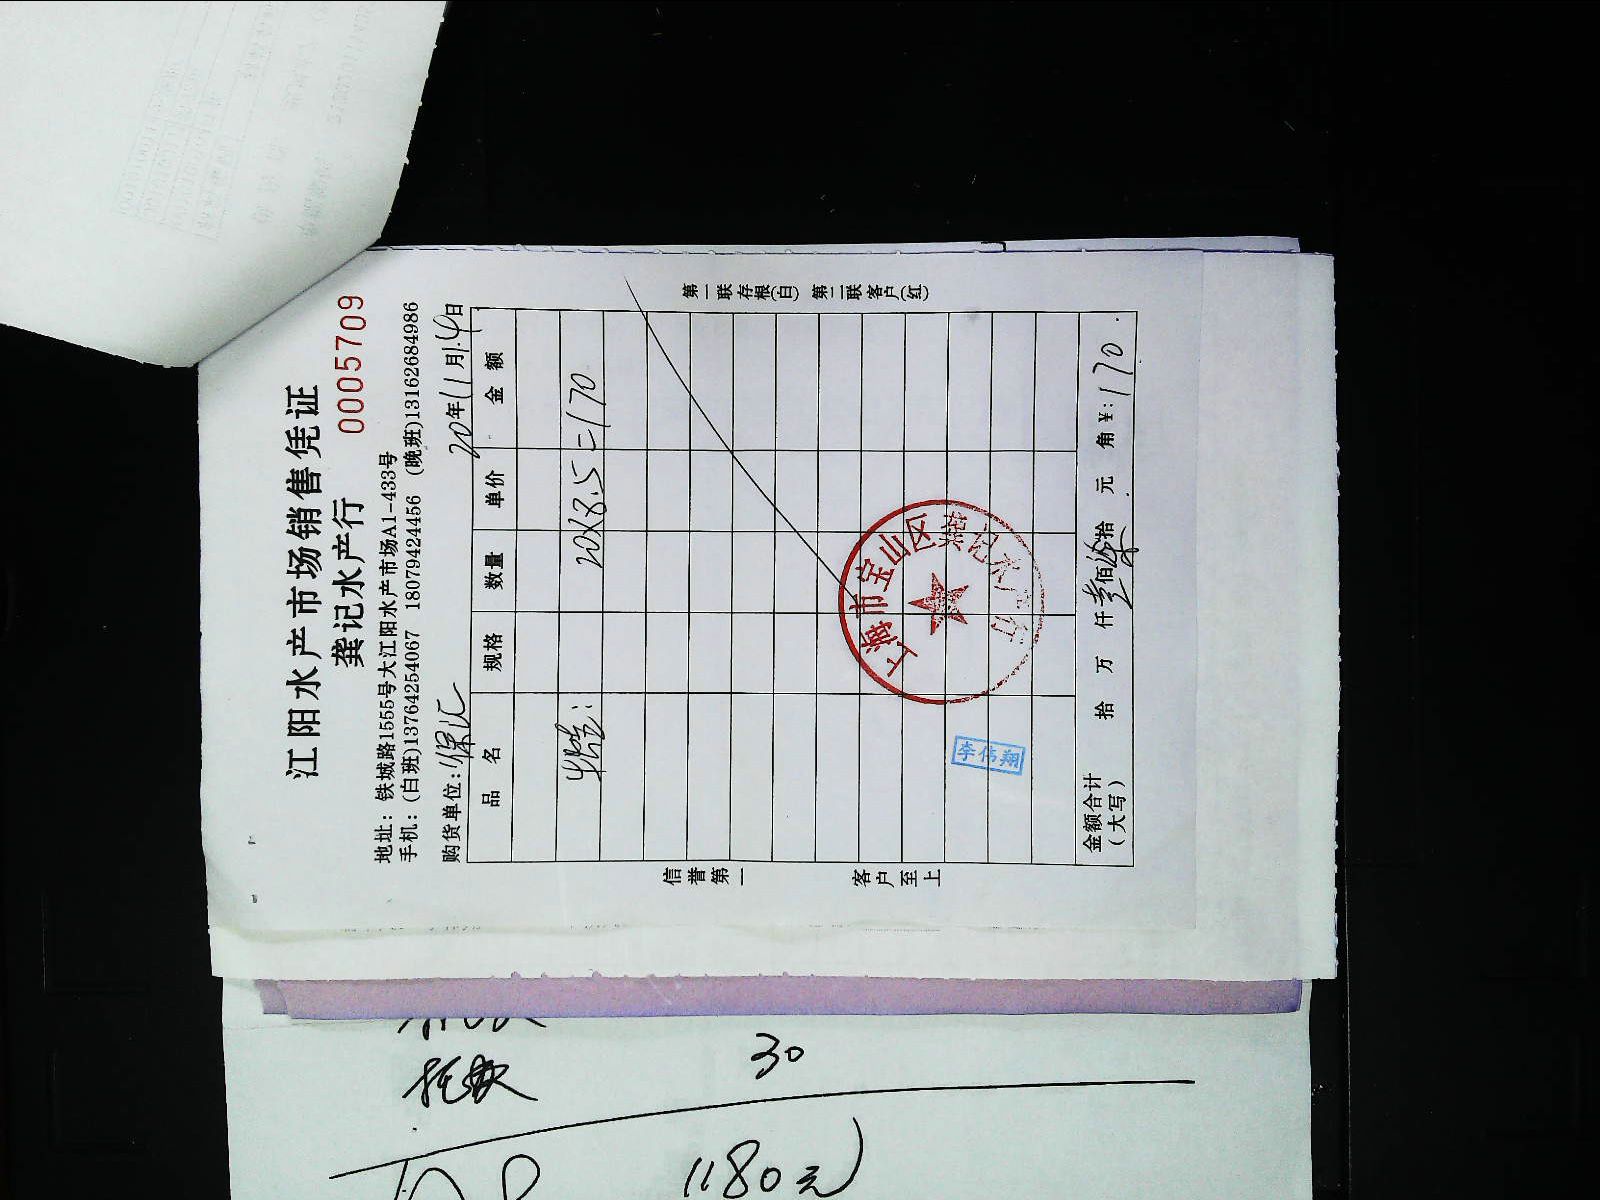 江阳水产市场销售凭证
龚记水产行
0005709
地址：铁城路1555号大江阳水产市场A1-433号
手机：(白班)13764254067 18079424456 (晚班)13162684986
购货单位： 20年11月4日
品 名 规格 数量 单价 金 额
20×8.5=170
金额合计（大写） 拾 万 仟 壹佰 柒拾 元 角 ¥:170
信誉第一 客户至上
第一联存根(白) 第二联客户(红)
上海市宝山区龚记水产行
李伟翔
30
1180元